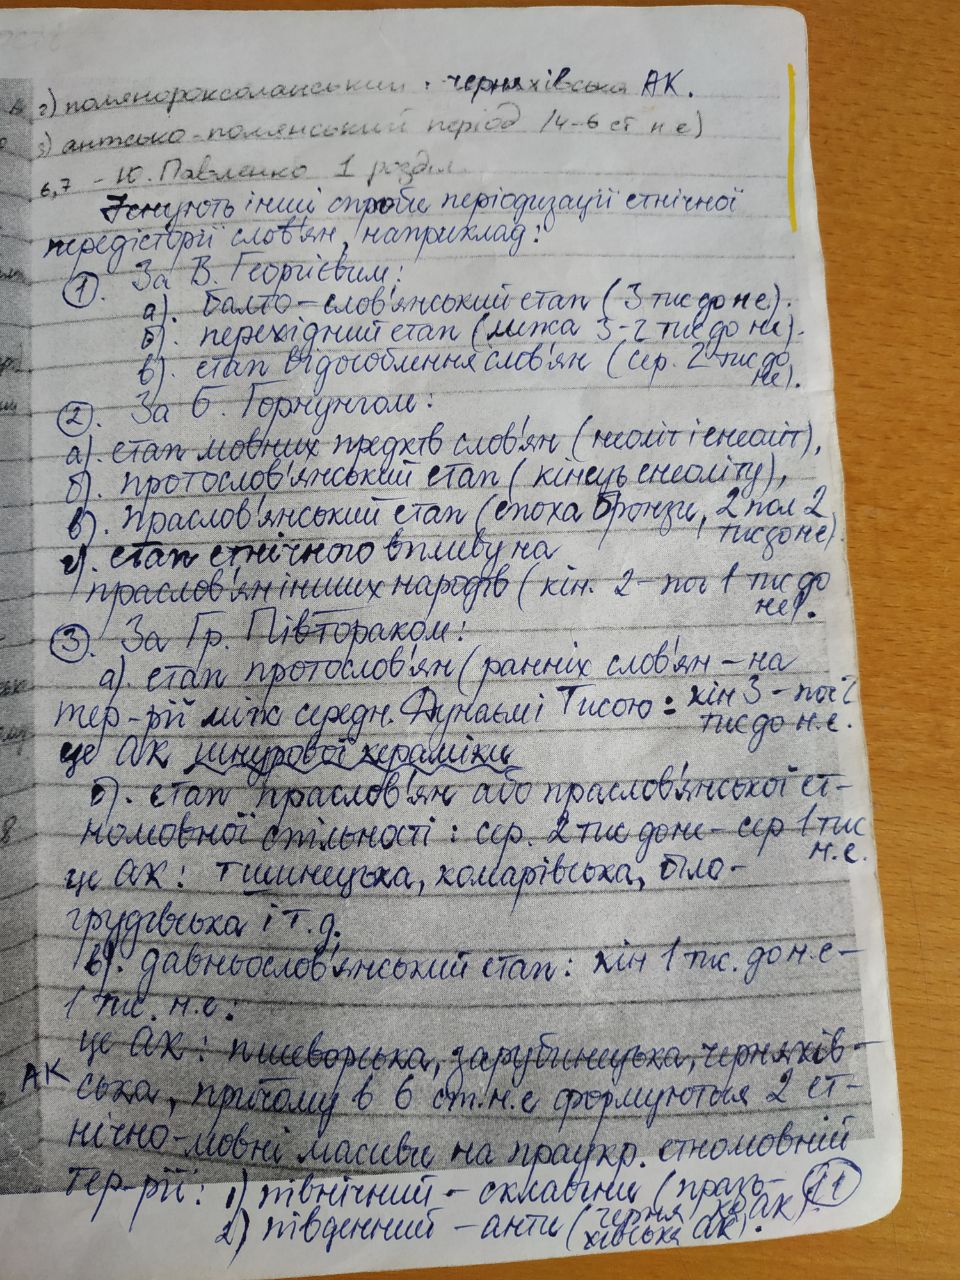 г) полянороксоланський : черняхівська АК.
д) антсько-полянський період /4-6 ст н е)
6,7 - Ю. Павленко 1 розділ
Існують інші спроби періодизації етнічної
передісторії слов'ян, наприклад:
1. За В. Георгієвим:
а). балто-слов'янський етап (3 тис до н е).
б). перехідний етап (межа 3-2 тис до не).
в). етап відособлення слов'ян (сер. 2 тис до
не).
2. За Б. Горнунгом:
а). етап мовних предків слов'ян (неоліт і енеоліт),
б). протослов'янський етап (кінець енеоліту),
в). праслов'янський етап (епоха бронзи, 2 пол 2
тис до не)
г). етап етнічного впливу на
праслов'ян інших народів (кін. 2 - поч 1 тис до
не).
3. За Гр. Півтораком:
а). етап протослов'ян (ранніх слов'ян - на
тер-рії між середн. Дунаєм і Тисою : кін 3 - поч 2
тис до н.е.
це АК шнурової кераміки
б). етап праслов'ян або праслов'янської ет-
номовної спільності : сер. 2 тис до не - сер 1 тис
н.е.
це АК : тшинецька, комарівська, біло-
грудівська і т.д.
в). давньослов'янський етап : кін 1 тис. до н.е -
1 тис. н.е :
це АК : пшеворська, зарубинецька, черняхів-
АК ська, причому в 6 ст. н.е формуються 2 ет-
нічно-мовні масиви на праукр. етномовній
тер-рії : 1) північний - склавини (празь-
ка АК) 11
2) південний - анти (черня
хівська АК).